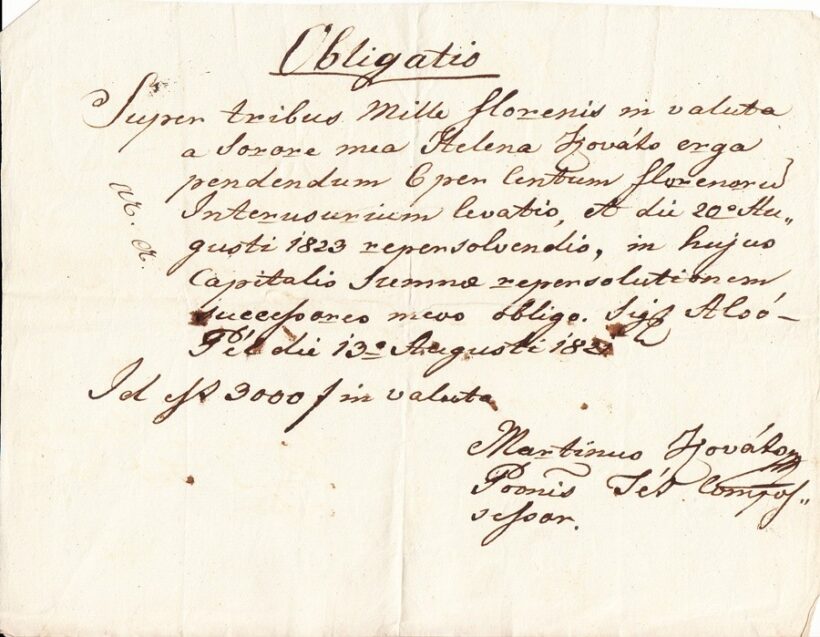 Obligatio
Super tribus Mille florenis in valuta
a Sorore mea Helena erga
pendendum 6 per Centum florenorū
Interusurium levatis, et die 20ª Au„
gusti 1823 repersolvendis, in hujus
Capitalis Summæ repersolutionem
successores meos obligo. Sig Alsó–
Pél die 13ª Augusti 182
Id est 3000 f in valuta
Martinus
Possnis Compos„
sessor.